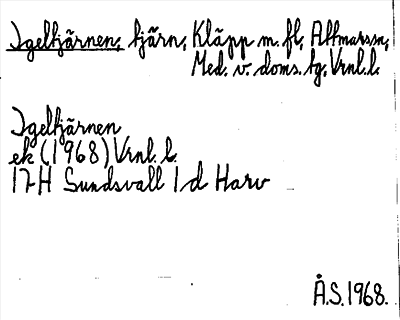 Igeltjärnen, tjärn, Kläpp m. fl, Attmarssn,
Med. v. doms. tg, Vrnl. l.
Igeltjärnen
ek (1968) Vrnl. l.
17H Sundsvall 1d Harv
Å.S. 1968.